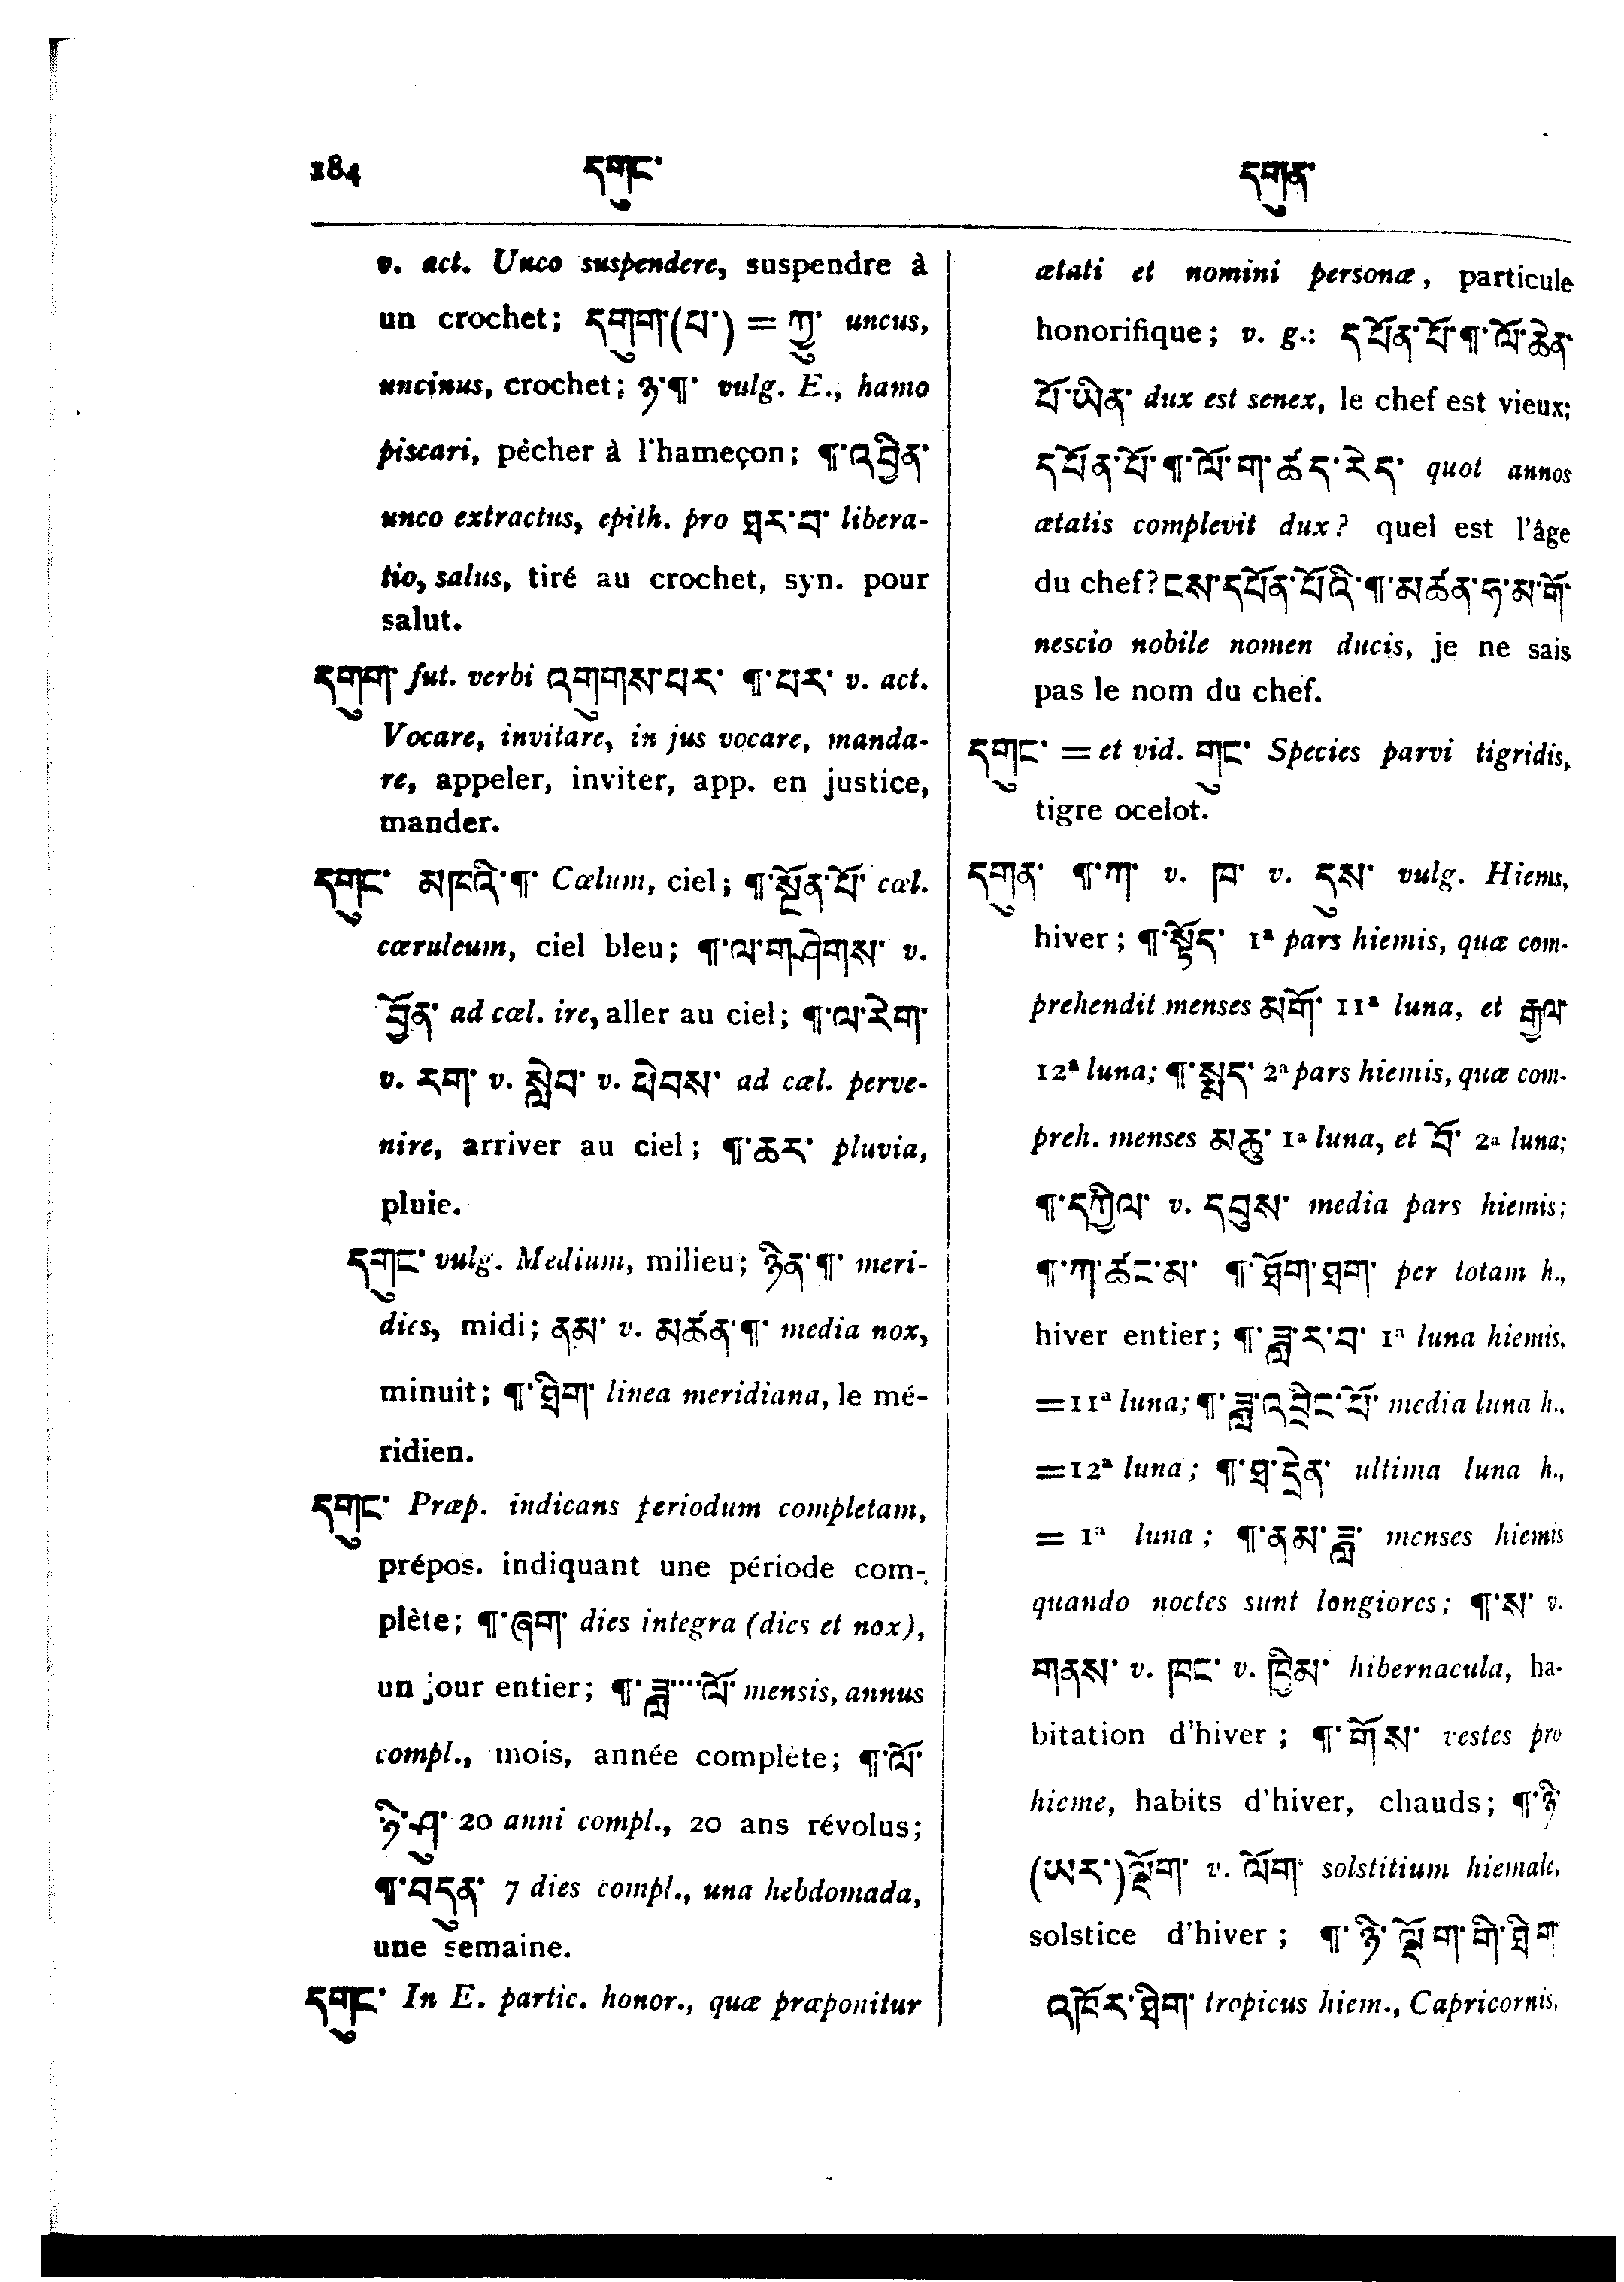 184 དགུང་ དགུན་
v. act. Unco suspendere, suspendre à
un crochet; དགུག་(པ་) = ཀྱུ་ uncus,
uncinus, crochet; ཉ་¶་ vulg. E., hamo
piscari, pêcher à l'hameçon; ¶་འབྱིན་
unco extractus, epith. pro ཐར་བ་ libera-
tio, salus, tiré au crochet, syn. pour
salut.
དགུག་ fut. verbi འགུགས་པར་ ¶་པར་ v. act.
Vocare, invitare, in jus vocare, manda-
re, appeler, inviter, app. en justice,
mander.
དགུང་ མཁའི་¶་ Cœlum, ciel; ¶་སྔོན་པོ་ cœl.
cœruleum, ciel bleu; ¶་ལ་གཤེགས་ v.
བྱོན་ ad cœl. ire, aller au ciel; ¶་ལ་རེག་
v. རག་ v. སླེབ་ v. ཕེབས་ ad cœl. perve-
nire, arriver au ciel; ¶་ཆར་ pluvia,
pluie.
དགུང་ vulg. Medium, milieu; ཉིན་¶་ meri-
dies, midi; ནམ་ v. མཚན་¶་ media nox,
minuit; ¶་ཐིག་ linea meridiana, le mé-
ridien.
དགུང་ Præp. indicans periodum completam,
prépos. indiquant une période com-
plète; ¶་ཞག་ dies integra (dies et nox),
un jour entier; ¶་ཟླ་་་་ལོ་ mensis, annus
compl., mois, année complète; ¶་ལོ་
ཉི་ཤུ་ 20 anni compl., 20 ans révolus;
¶་བདུན་ 7 dies compl., una hebdomada,
une semaine.
དགུང་ In E. partic. honor., quæ præponitur
ætati et nomini personæ, particule
honorifique; v. g.: དཔོན་པོ་¶་ལོ་ཆེན་
པོ་ཡིན་ dux est senex, le chef est vieux;
དཔོན་པོ་¶་ལོ་ག་ཚད་རེད་ quot annos
ætatis complevit dux? quel est l'âge
du chef? ངས་དཔོན་པོའི་¶་མཚན་ཧ་མ་གོ་
nescio nobile nomen ducis, je ne sais
pas le nom du chef.
དགུང་ = et vid. གུང་ Species parvi tigridis,
tigre ocelot.
དགུན་ ¶་ཀ་ v. ཁ་ v. དུས་ vulg. Hiems,
hiver; ¶་སྟོད་ 1ª pars hiemis, quæ com-
prehendit menses མགོ་ 11ª luna, et རྒྱལ་
12ª luna; ¶་སྨད་ 2ª pars hiemis, quæ com-
preh. menses མཆུ་ 1ª luna, et བོ་ 2ª luna;
¶་དཀྱིལ་ v. དབུས་ media pars hiemis;
¶་ཀ་ཚང་མ་ ¶་ཐོག་ཐག་ per totam h.,
hiver entier; ¶་ཟླ་ར་བ་ 1ª luna hiemis,
=11ª luna; ¶་ཟླ་འབྲིང་པོ་ media luna h.,
=12ª luna; ¶་ཐ་དྲེན་ ultima luna h.,
= 1ª luna; ¶་ནམ་ཟླ་ menses hiemis
quando noctes sunt longiores; ¶་ས་ v.
གནས་ v. ཁང་ v. ཁྱིམ་ hibernacula, ha-
bitation d'hiver; ¶་གོས་ vestes pro
hieme, habits d'hiver, chauds; ¶་ཉི་
(ཡར་)ལྡོག་ v. ལོག་ solstitium hiemale,
solstice d'hiver; ¶་ཉི་ལྡོག་གི་ཐིག
འཁོར་ཐིག་ tropicus hiem., Capricornis,